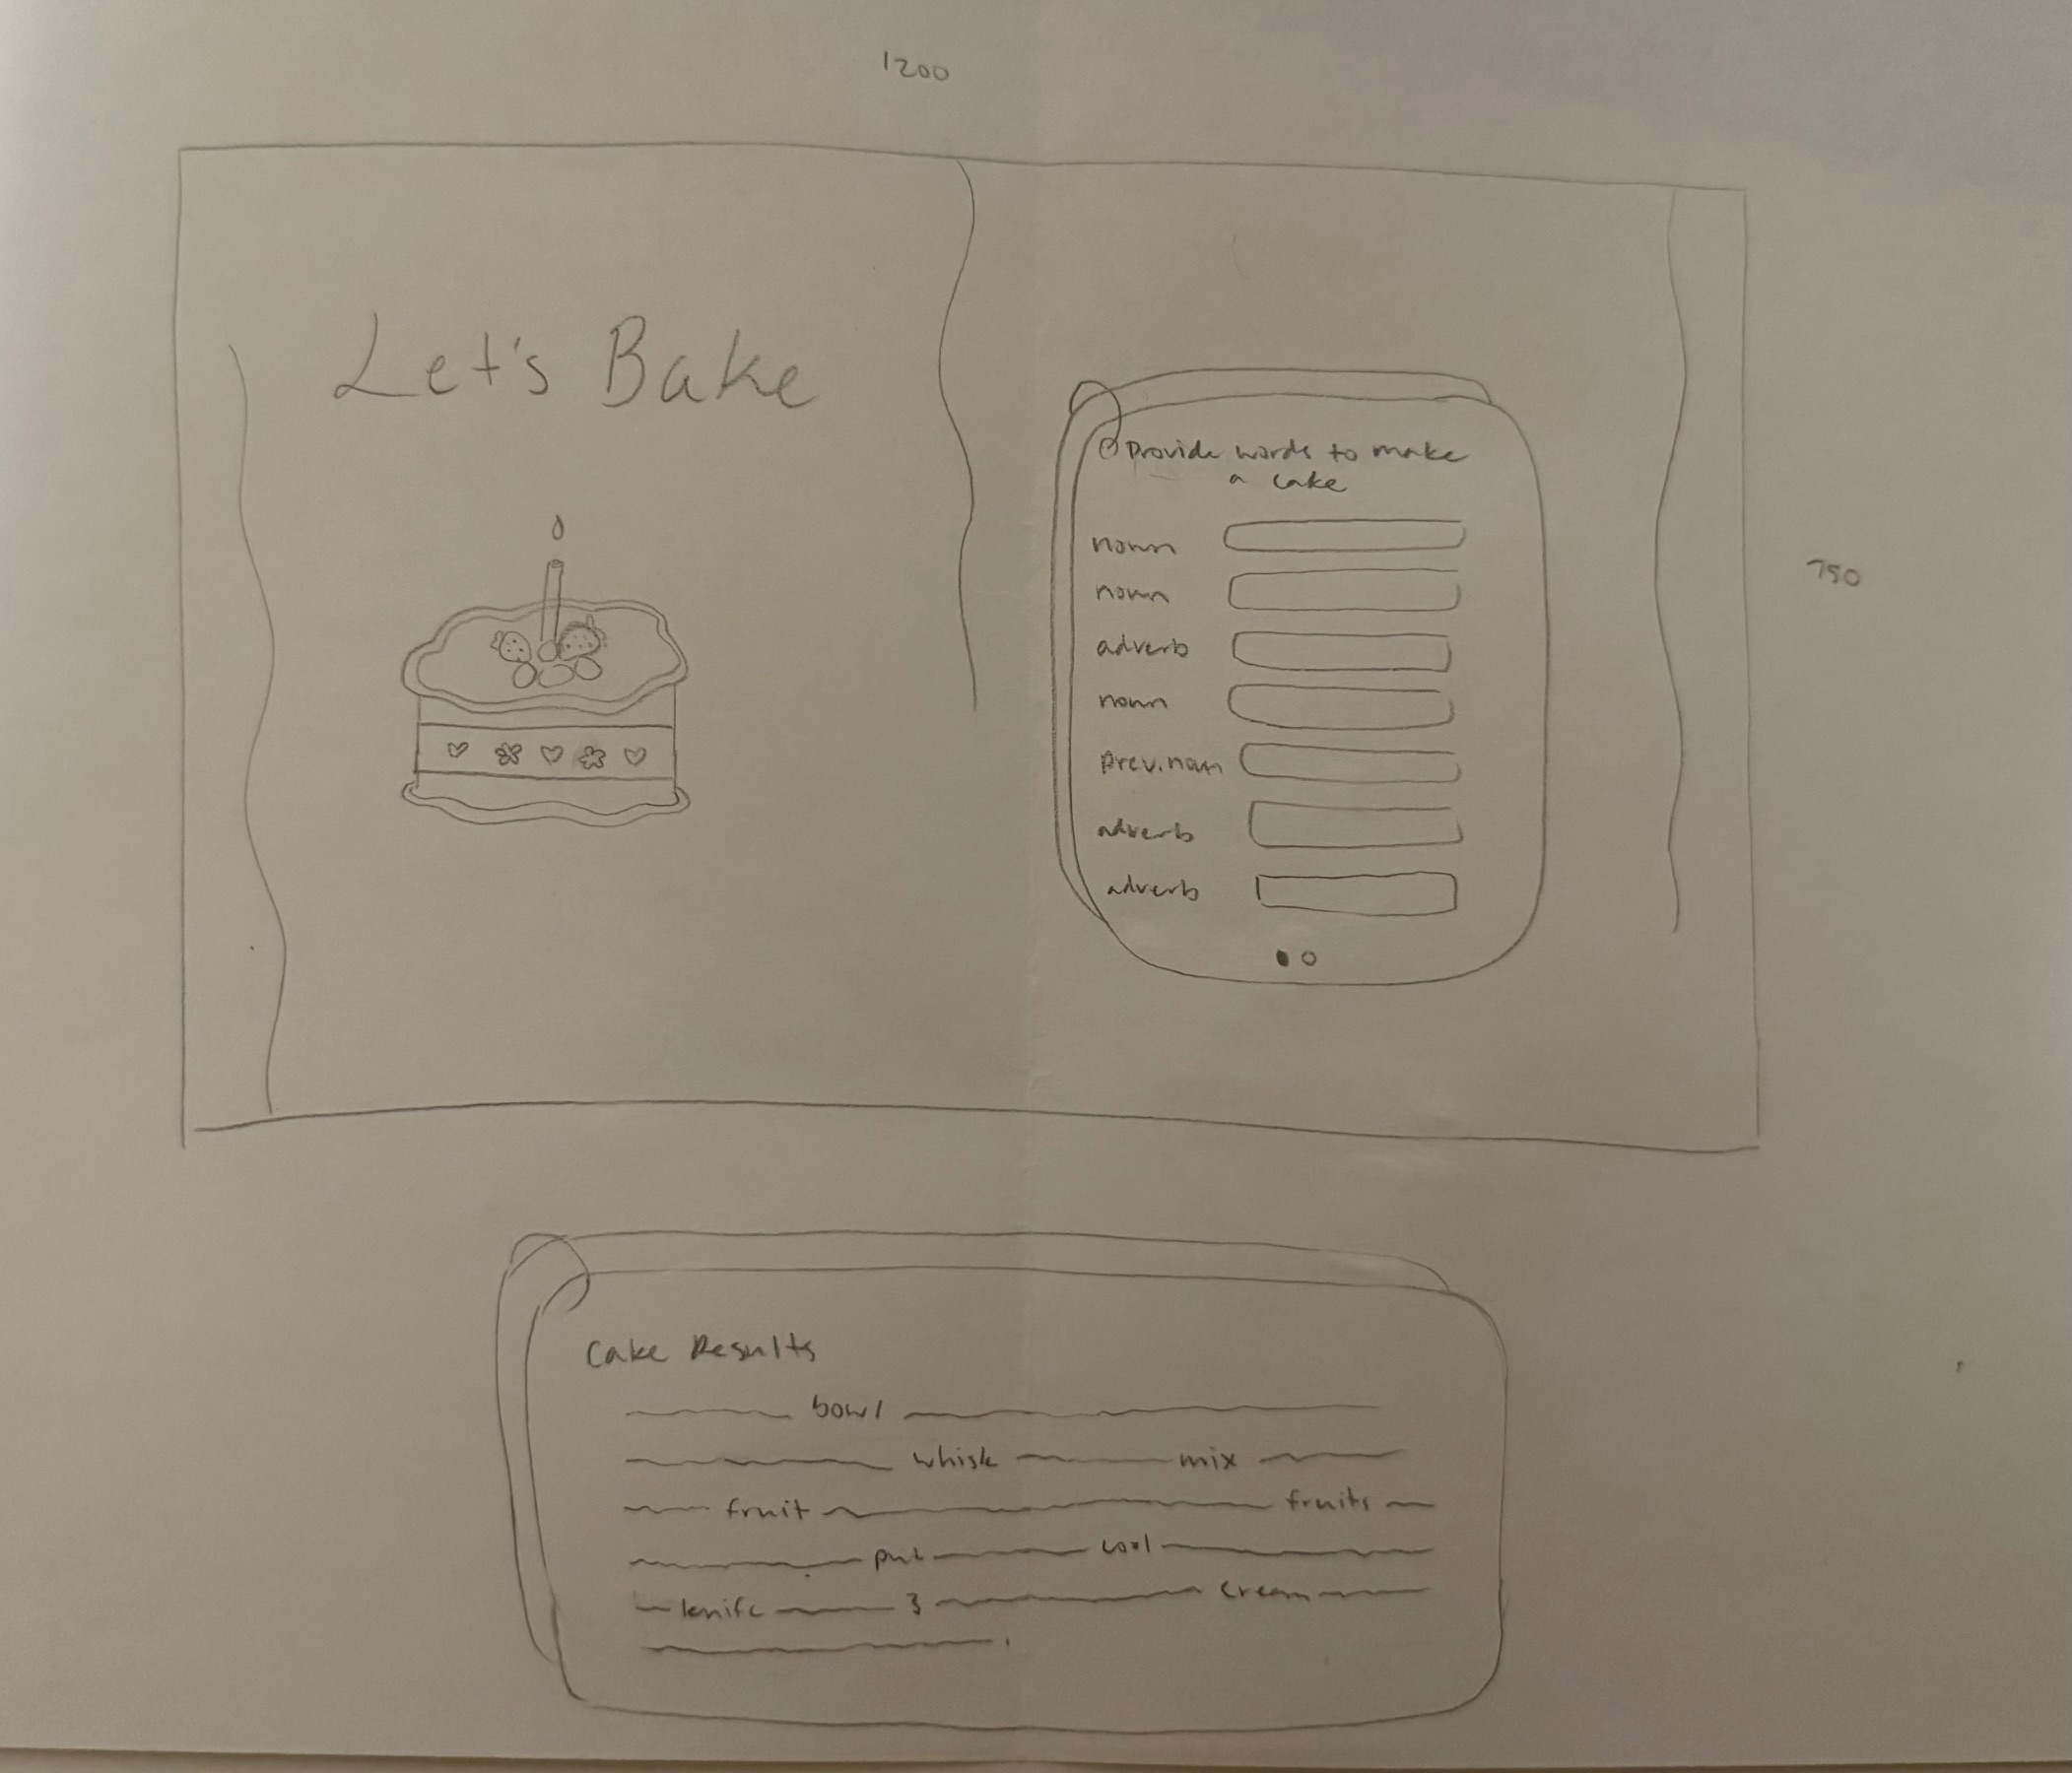 1200
Let's Bake
Provide words to make
a cake
noun
noun
adverb
noun
prev.noun
adverb
adverb
750
Cake Results
bowl
whisk mix
fruit fruits
put cool
knife 3 cream